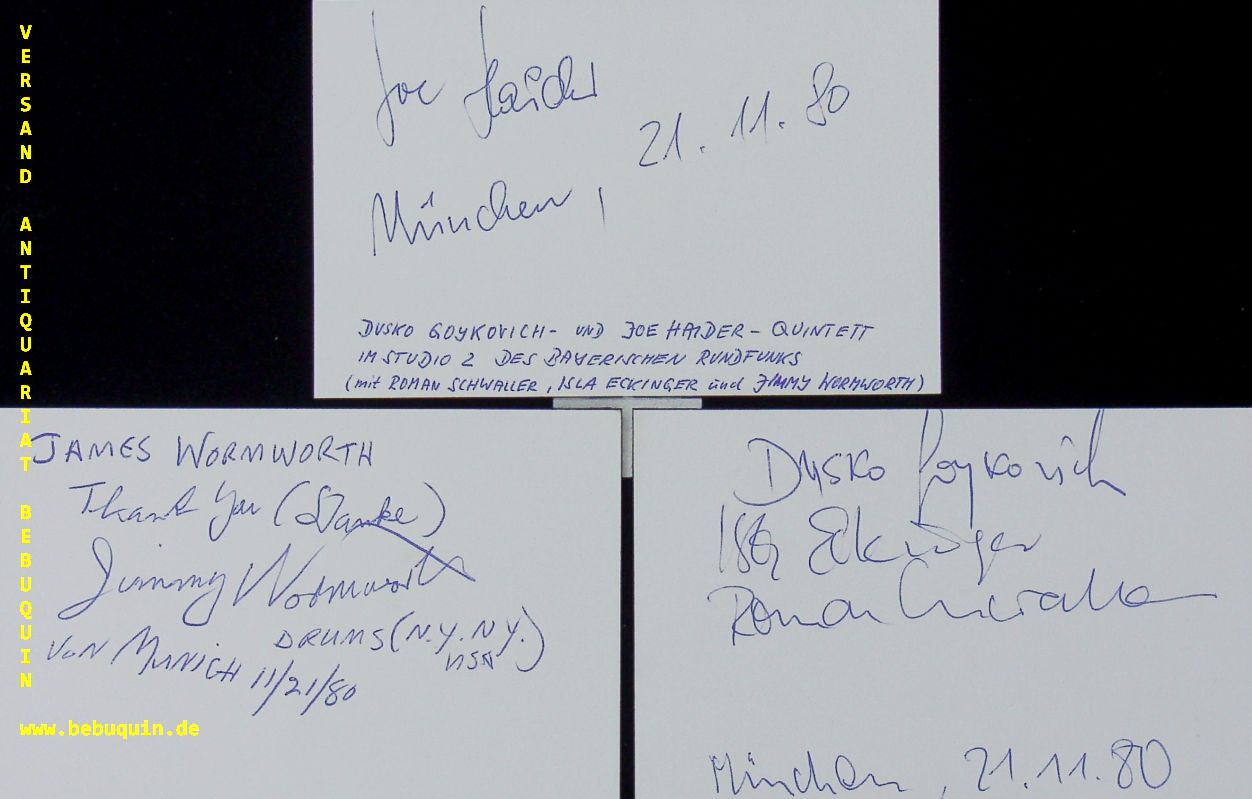 VERSAND ANTIQUARIAT BEBUQUIN
www.bebuquin.de
Joe Haider
21.11.80
München,
DUSKO GOYKOVICH- UND JOE HAIDER-QUINTETT
IM STUDIO 2 DES BAYERISCHEN RUNDFUNKS
(mit ROMAN SCHWALLER, ISLA ECKINGER und JIMMY WORMWORTH)
JAMES WORMWORTH
Thank You (Danke)
Jimmy Wormworth
DRUMS (N.Y. N.Y.)
USA
VON MUNICH 11/21/80
Dusko Goykovich
Isla Eckinger
Roman Schwaller
München, 21.11.80